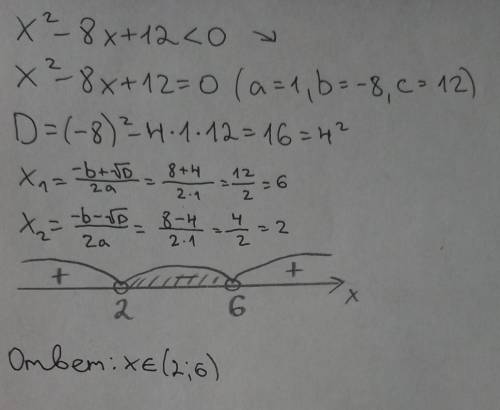 x² - 8x + 12 < 0 ↘
x² - 8x + 12 = 0 (a = 1, b = -8, c = 12)
D = (-8)² - 4·1·12 = 16 = 4²
x₁ = (-b+√D)/(2a) = (8+4)/(2·1) = 12/2 = 6
x₂ = (-b-√D)/(2a) = (8-4)/(2·1) = 4/2 = 2
+ +
2 6 x
Ответ: x∈(2;6)